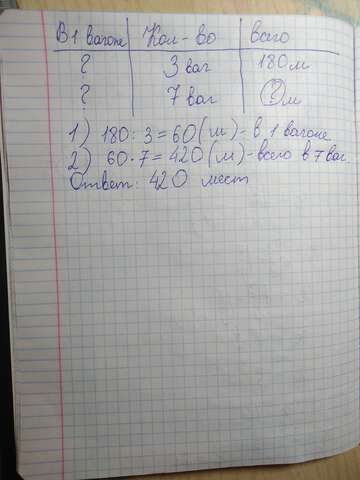 В 1 вагоне Кол-во всего
? 3 ваг 180 м
? 7 ваг ? м
1) 180 : 3 = 60 (м) - в 1 вагоне
2) 60 · 7 = 420 (м) - всего в 7 ваг.
Ответ: 420 мест